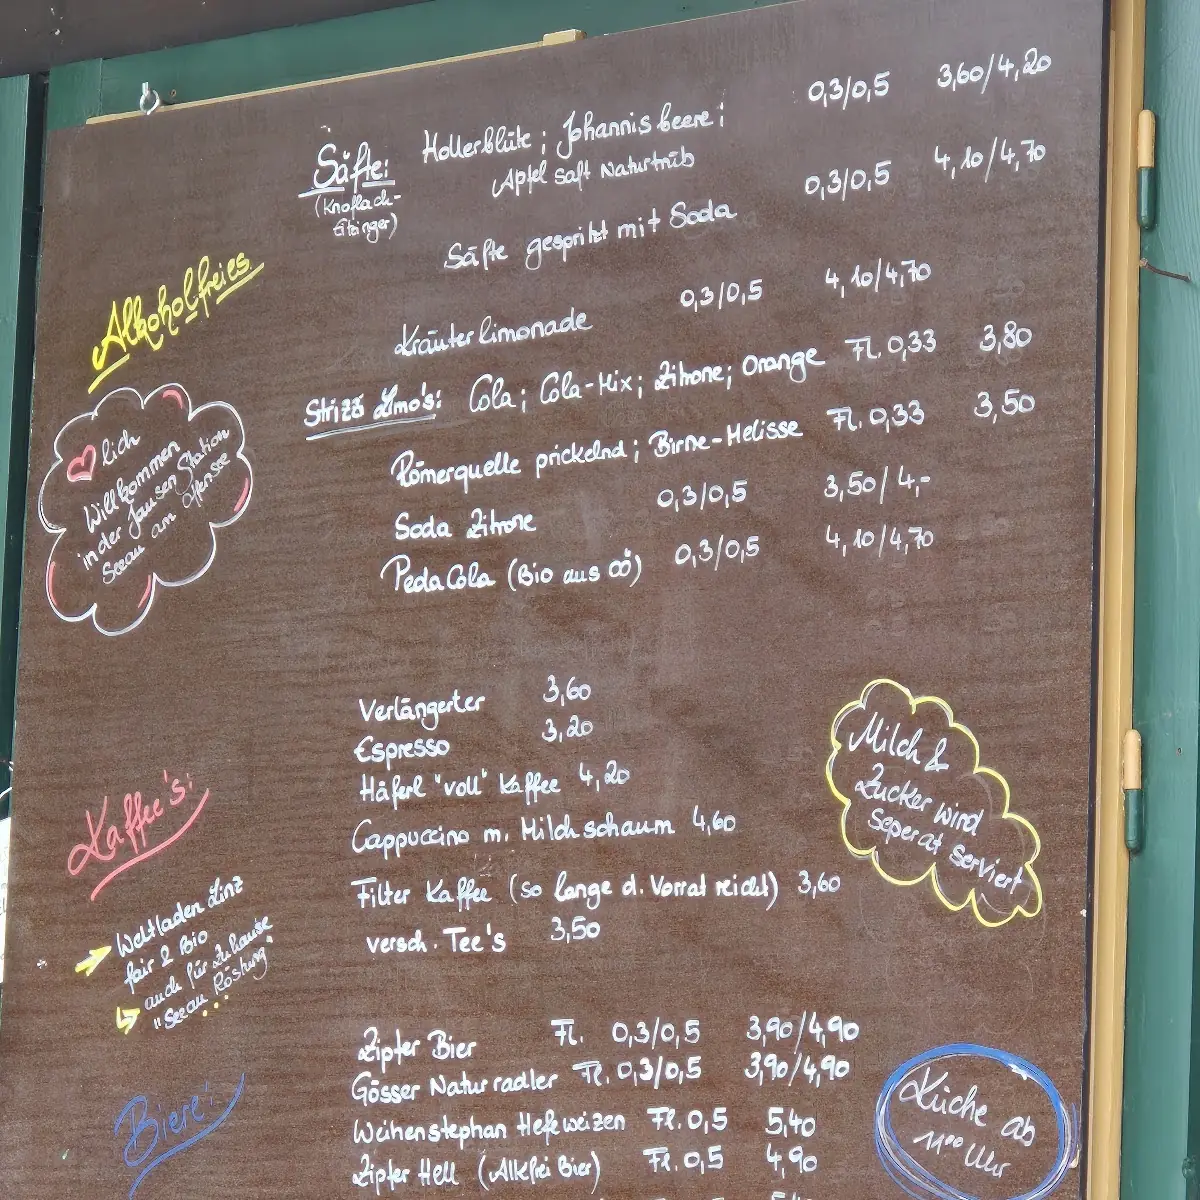 Säfte: Hollerblüte; Johannisbeere; 0,3/0,5 3,60/4,20
(Knoflach- Apfelsaft Naturtrüb
Eitzinger)
Säfte gespritzt mit Soda 0,3/0,5 4,10/4,70
Alkoholfreies
Kräuterlimonade 0,3/0,5 4,10/4,70
Strizzi Limo's: Cola; Cola-Mix; Zitrone; Orange Fl. 0,33 3,80
Römerquelle prickelnd; Birne-Melisse Fl. 0,33 3,50
Soda Zitrone 0,3/0,5 3,50/4,-
PedaCola (Bio aus OÖ) 0,3/0,5 4,10/4,70
lich
Willkommen
in der Jausen Station
Seeau am Offensee
Verlängerter 3,60
Espresso 3,20
Häferl "voll" Kaffee 4,20
Cappuccino m. Milchschaum 4,60
Filter Kaffee (so lange d. Vorrat reicht) 3,60
versch. Tee's 3,50
Milch &
Zucker wird
seperat serviert
Kaffee's:
Weltladen Linz
fair & Bio
auch für Zuhause
"Seeau Röstung"
Biere:
Zipfer Bier Fl. 0,3/0,5 3,90/4,90
Gösser Naturradler Fl. 0,3/0,5 3,90/4,90
Weihenstephan Hefeweizen Fl. 0,5 5,40
Zipfer Hell (Alkfrei Bier) Fl. 0,5 4,90
Küche ab
11⁰⁰ Uhr